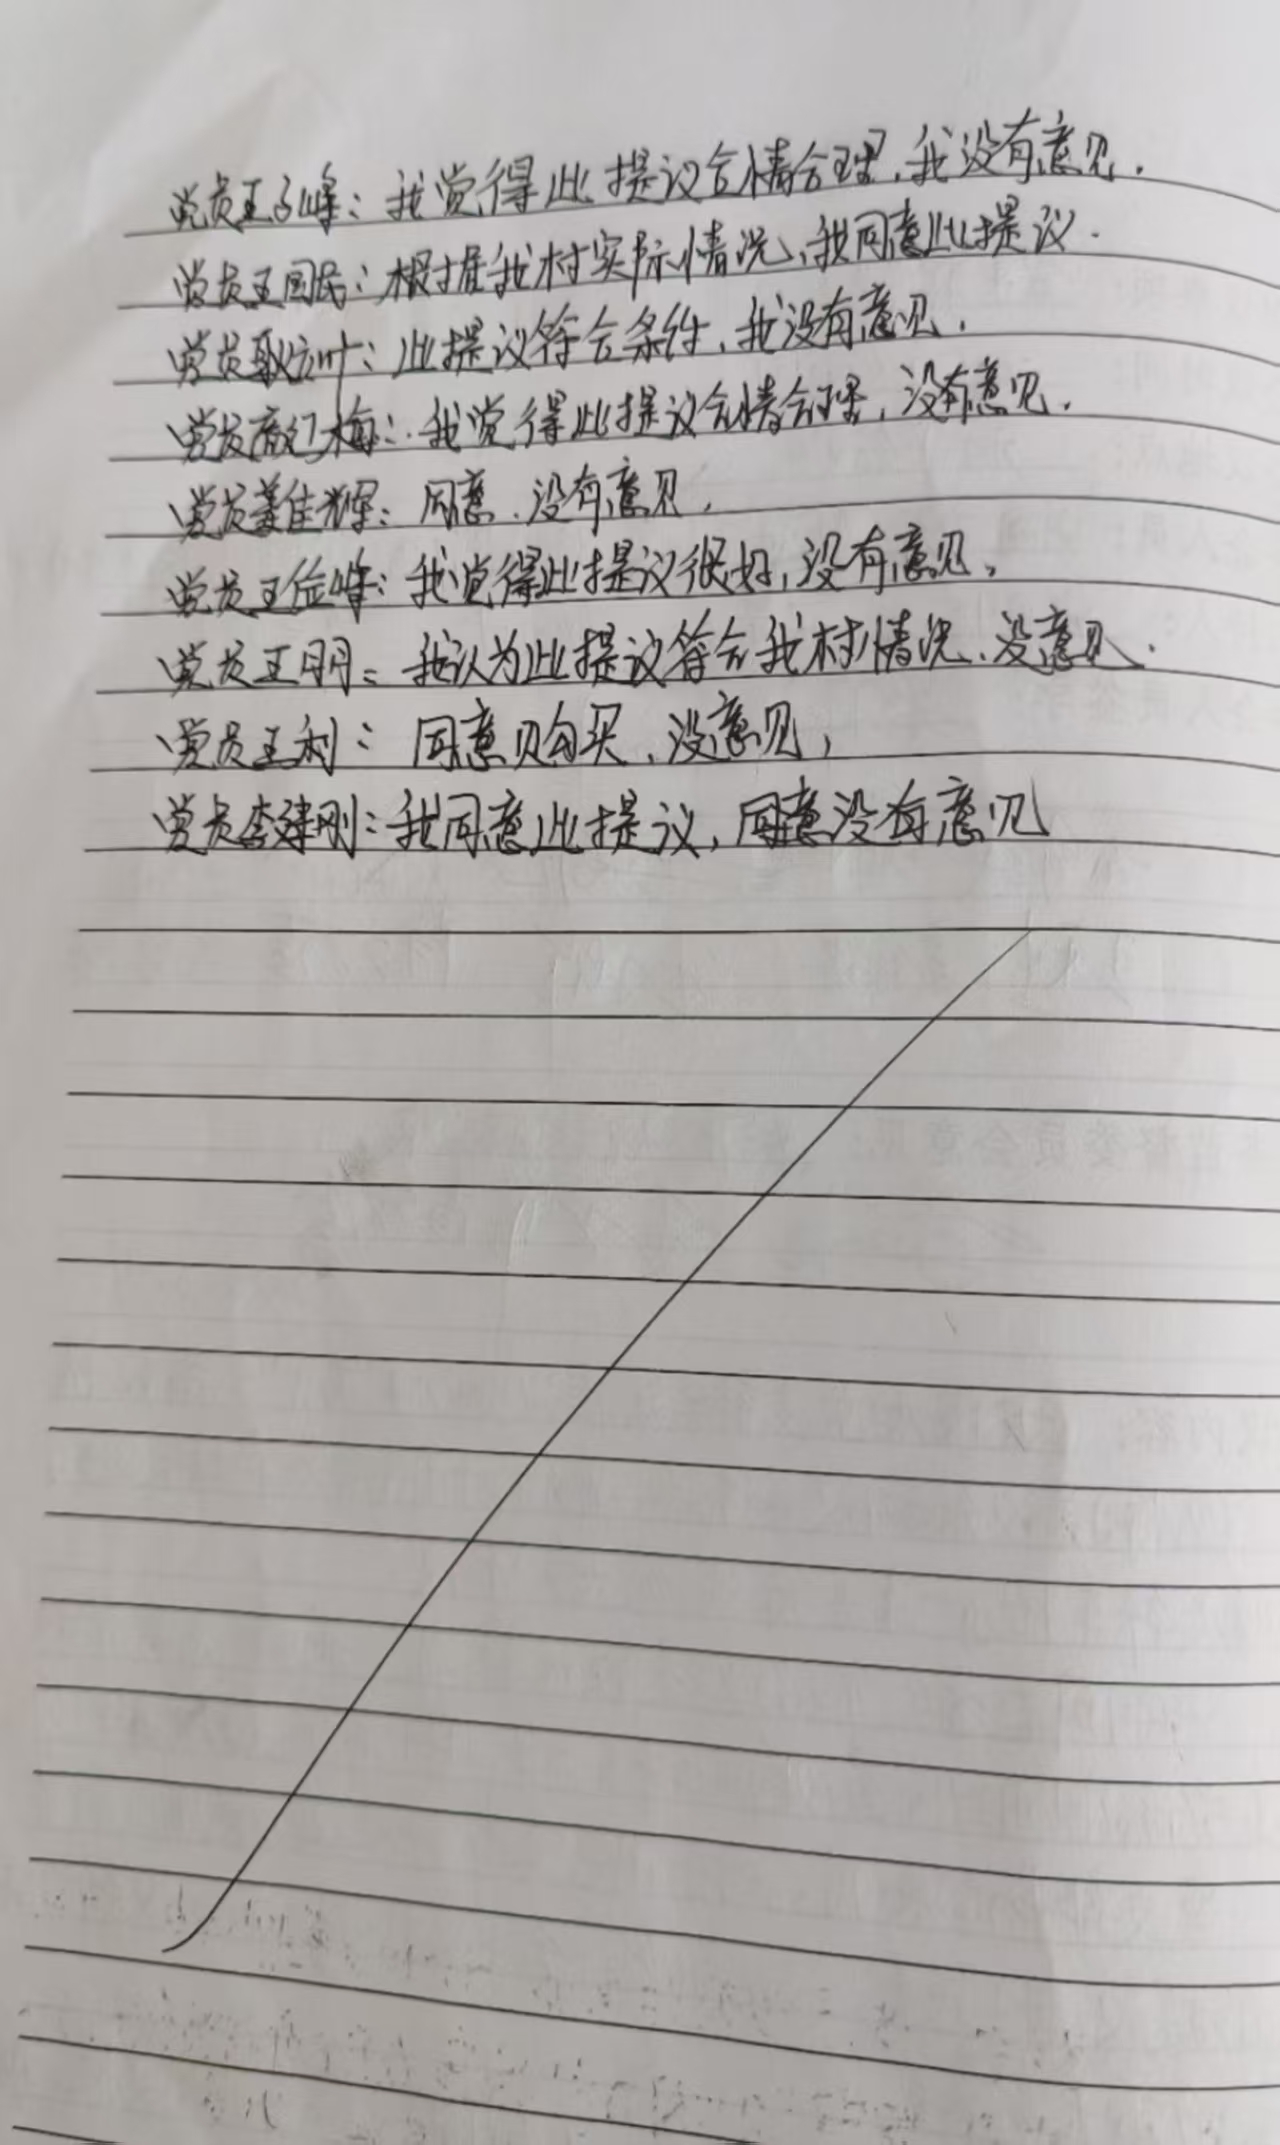 党员王子峰：我觉得此提议合情合理，我没有意见.
党员王国民：根据我村实际情况，我同意此提议.
党员耿方叶：此提议符合条件，我没有意见.
党员商红梅：我觉得此提议合情合理，没有意见.
党员姜佳辉：同意.没有意见.
党员王俭峰：我觉得此提议很好，没有意见.
党员王明：我认为此提议符合我村情况、没意见.
党员王利：同意购买、没意见，
党员李建刚：我同意此提议，同意没有意见